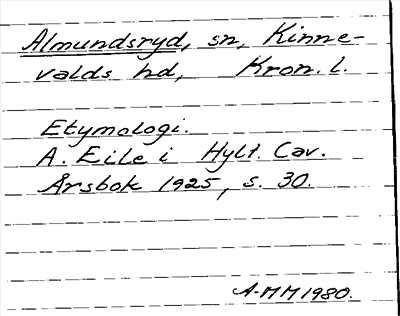 Almundsryd, sn, Kinne-
valds hd, Kron. l.
Etymologi.
A. Eile i Hylt. Cav.
Årsbok 1925, s. 30.
A-MM 1980.